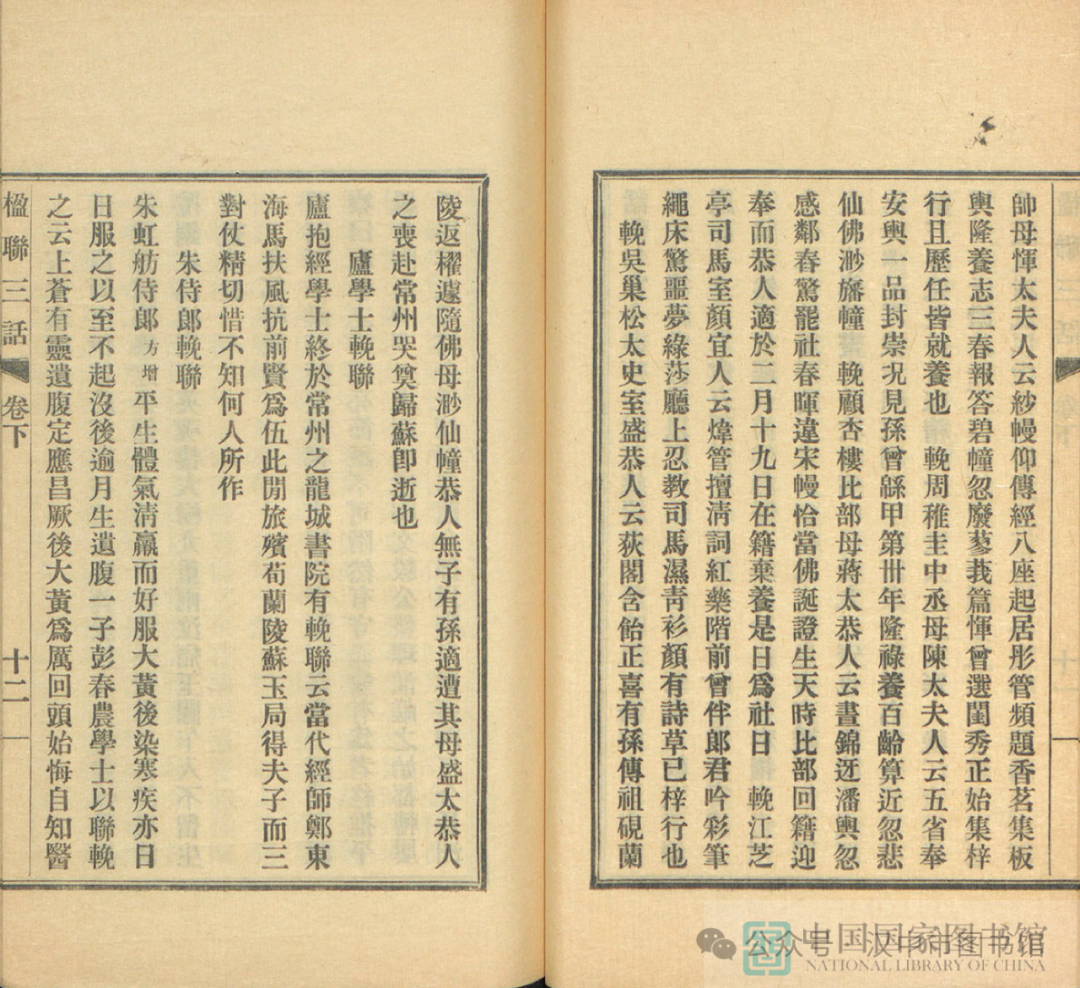 帥母惲太夫人云紗幔仰傳經八座起居彤管頻題香茗集板
輿隆養志三春報答碧幢忽廢蓼莪篇惲曾選閨秀正始集梓
行且歷任皆就養也　輓周稚圭中丞母陳太夫人云五省奉
安輿一品封崇況見孫曾繇甲第卅年隆祿養百齡算近忽悲
仙佛渺旛幢　輓顧杏樓比部母蔣太恭人云晝錦迓潘輿忽
感鄰春驚罷社春暉違宋幔恰當佛誕證生天時比部回籍迎
奉而恭人適於二月十九日在籍棄養是日爲社日　輓江芝
亭司馬室顏宜人云煒管擅清詞紅藥階前曾伴郎君吟彩筆
繩床驚噩夢綠莎廳上忍教司馬濕靑衫顏有詩草已梓行也
輓吳巢松太史室盛恭人云荻閣含飴正喜有孫傳祖硯蘭
陵返櫂遽隨佛母渺仙幢恭人無子有孫適遭其母盛太恭人
之喪赴常州哭奠歸蘇卽逝也
盧學士輓聯
盧抱經學士終於常州之龍城書院有輓聯云當代經師鄭東
海馬扶風抗前賢爲伍此閒旅殯荀蘭陵蘇玉局得夫子而三
對仗精切惜不知何人所作
朱侍郎輓聯
朱虹舫侍郎方增平生體氣淸羸而好服大黃後染寒疾亦日
日服之以至不起沒後逾月生遺腹一子彭春農學士以聯輓
之云上蒼有靈遺腹定應昌厥後大黃爲厲回頭始悔自知醫
楹聯三話　卷下　十二
中国国家图书馆
NATIONAL LIBRARY OF CHINA
公众号·汉中市图书馆